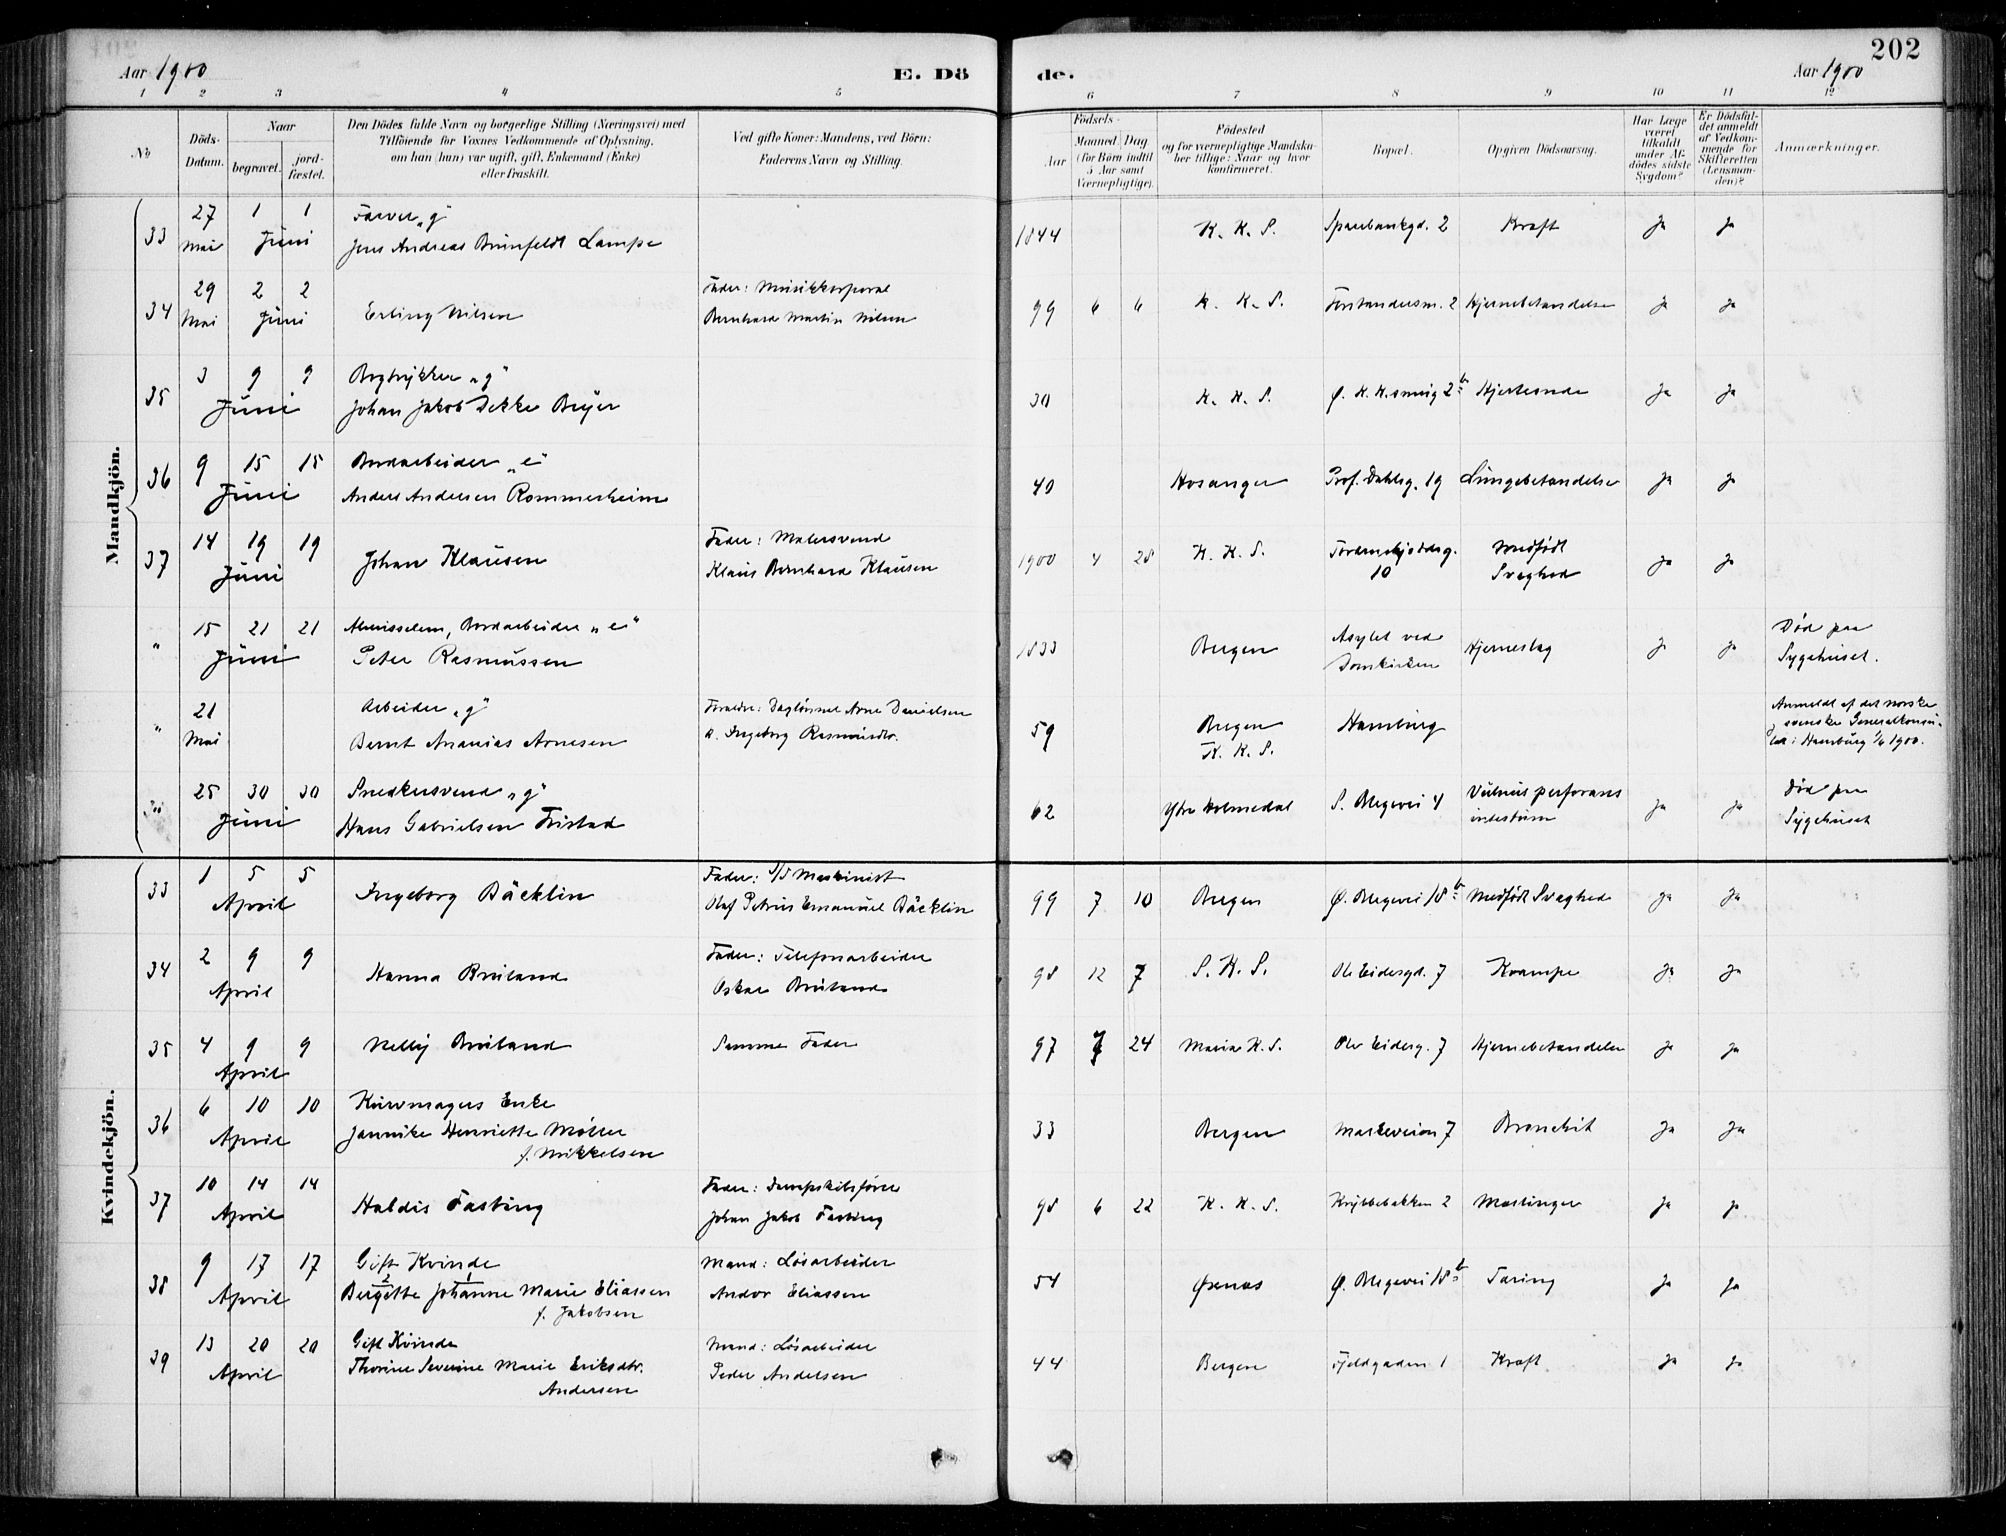 202
Aar 1900
E. Dö
de.
Aar 1900
1 2 3 4 5 6 7 8 9 10 11 12
No
Döds-Datum.
Naar
begravet.
jord-fæstet.
Den Dödes fulde Navn og borgerlige Stilling (Næringsvei) med
Tilföiende for Voxnes Vedkommende af Oplysning,
om han (hun) var ugift, gift, Enkemand (Enke)
eller fraskilt.
Ved gifte Koner: Mandens, ved Börn:
Faderens Navn og Stilling.
Födsels-
Aar
Maaned Dag
(for Börn indtil
5 Aar samt
Værnepligtige).
Födested
og for værnepligtige Mandska-
ber tillige: Naar og hvor
konfirmeret.
Bopæl.
Opgiven Dödsaarsag.
Har Læge
været
tilkaldt
under Af-
dödes sidste
Sygdom?
Er Dödsfal-
det anmeldt
af Vedkom-
mende for
Skifteretten
(Lensman-
den)?
Anmærkninger.
Mandkjön.
33 27 Mai 1 1 Juni Farver „g"
Jens Andreas Brunfeldt Lampe 1844 K. K. S. Sparebankgd. 2 Kræft Ja Ja
34 29 Mai 2 2 Juni Erling Nilsen Fader: Musikkorporal
Bernhard Martin Nilsen 99 6 6 K. K. S. Forstandersm. 2 Hjernebetændelse Ja Ja
35 3 9 9 Juni Bogtrykker „g"
Johan Jakob Dekke Beyer 30 K. K. S. Ø. K. K. smug 2b Hjerteonde Ja Ja
36 9 15 15 Juni Bordarbeider „e"
Anders Andersen Rommerheim 40 Hosanger Prof. Dahlsg. 19 Lungebetændelse Ja Ja
37 14 19 19 Juni Johan Klausen Fader: Malersvend
Klaus Bernhard Klausen 1900 4 28 K. K. S. Tordenskjoldsg.
10 Medfødt
Svaghed Ja Ja
" 15 21 21 Juni Almisselem, Bordarbeider „e"
Peter Rasmussen 1833 Bergen Asylet ved
Domkirken Hjerneslag Ja Ja Død paa
Sygehuset.
" 21 Mai Arbeider „g"
Bernt Ananias Arnesen Forældre: Daglønner Arne Danielsen
o. Ingeborg Rasmusdtr. 59 Bergen
K. K. S. Hamburg Anmeldt af det norske
og svenske Generalkonsu-
lat i Hamburg 1/6 1900.
25 30 30 Juni Snedkersvend „g"
Hans Gabrielsen Tristad 62 Ytre Holmedal S. Blegevei 4 Vulnus perforans
intestinum Ja Ja Død paa
Sygehuset
Kvindekjön.
33 1 5 5 April Ingeborg Bäcklin Fader: S/S Maskinist
Olaf Petrus Emanuel Bäcklin 99 7 10 Bergen Ø. Blegevei 18b Medfødt Svaghed Ja Ja
34 2 9 9 April Hanna Bruland Fader: Telefonarbeider
Oskar Bruland 98 12 7 S. K. S. Ole Eidesgd. 7 Krampe Ja Ja
35 4 9 9 April Nelly Bruland Samme Fader 97 7 24 Maria K. S. Ole Eidesg. 7 Hjernebetændelse Ja Ja
36 6 10 10 April Kurvmagers Enke
Jannike Henriette Møller
f. Mikkelsen 33 Bergen Markeveien 7 Bronchit Ja Ja
37 10 14 14 April Haldis Fasting Fader: Dampskibsfører
Johan Jakob Fasting 98 6 22 K. K. S. Krybbebakken 2 Mæslinger Ja Ja
38 9 17 17 April Gift Kvinde
2 1
Bergette Johanne Marie Eliassen
f. Jakobsen Mand: Løsarbeider
Andor Eliassen 54 Øxnæs Ø. Blegevei 18b Tæring Ja Ja
39 13 20 20 April Gift Kvinde
Thorine Severine Marie Eriksdtr.
Andersen Mand: Løsarbeider
Peder Andersen 44 Bergen Fjeldgaden 1 Kræft Ja Ja